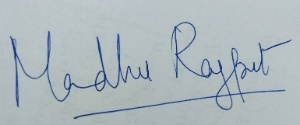 Madhu Rajput